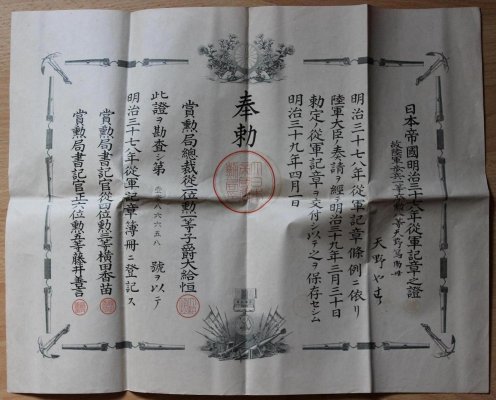 日本帝國明治三十七八年從軍記章之證
天野やす
明治三十七八年從軍記章條例ニ依リ
陸軍大臣ノ奏請ヲ經テ明治三十九年三月三十日
勅定ノ從軍記章ヲ交付シ以テ之ヲ保存セシム
明治三十九年四月一日
奉勅
賞勳局總裁從二位勳一等子爵大給恒
此證ヲ勘査シ第 八六六五八 號ヲ以テ
明治三十七八年從軍記章簿冊ニ登記ス
賞勳局書記官從四位勳三等橫田香苗
賞勳局書記官正六位勳五等藤井善言